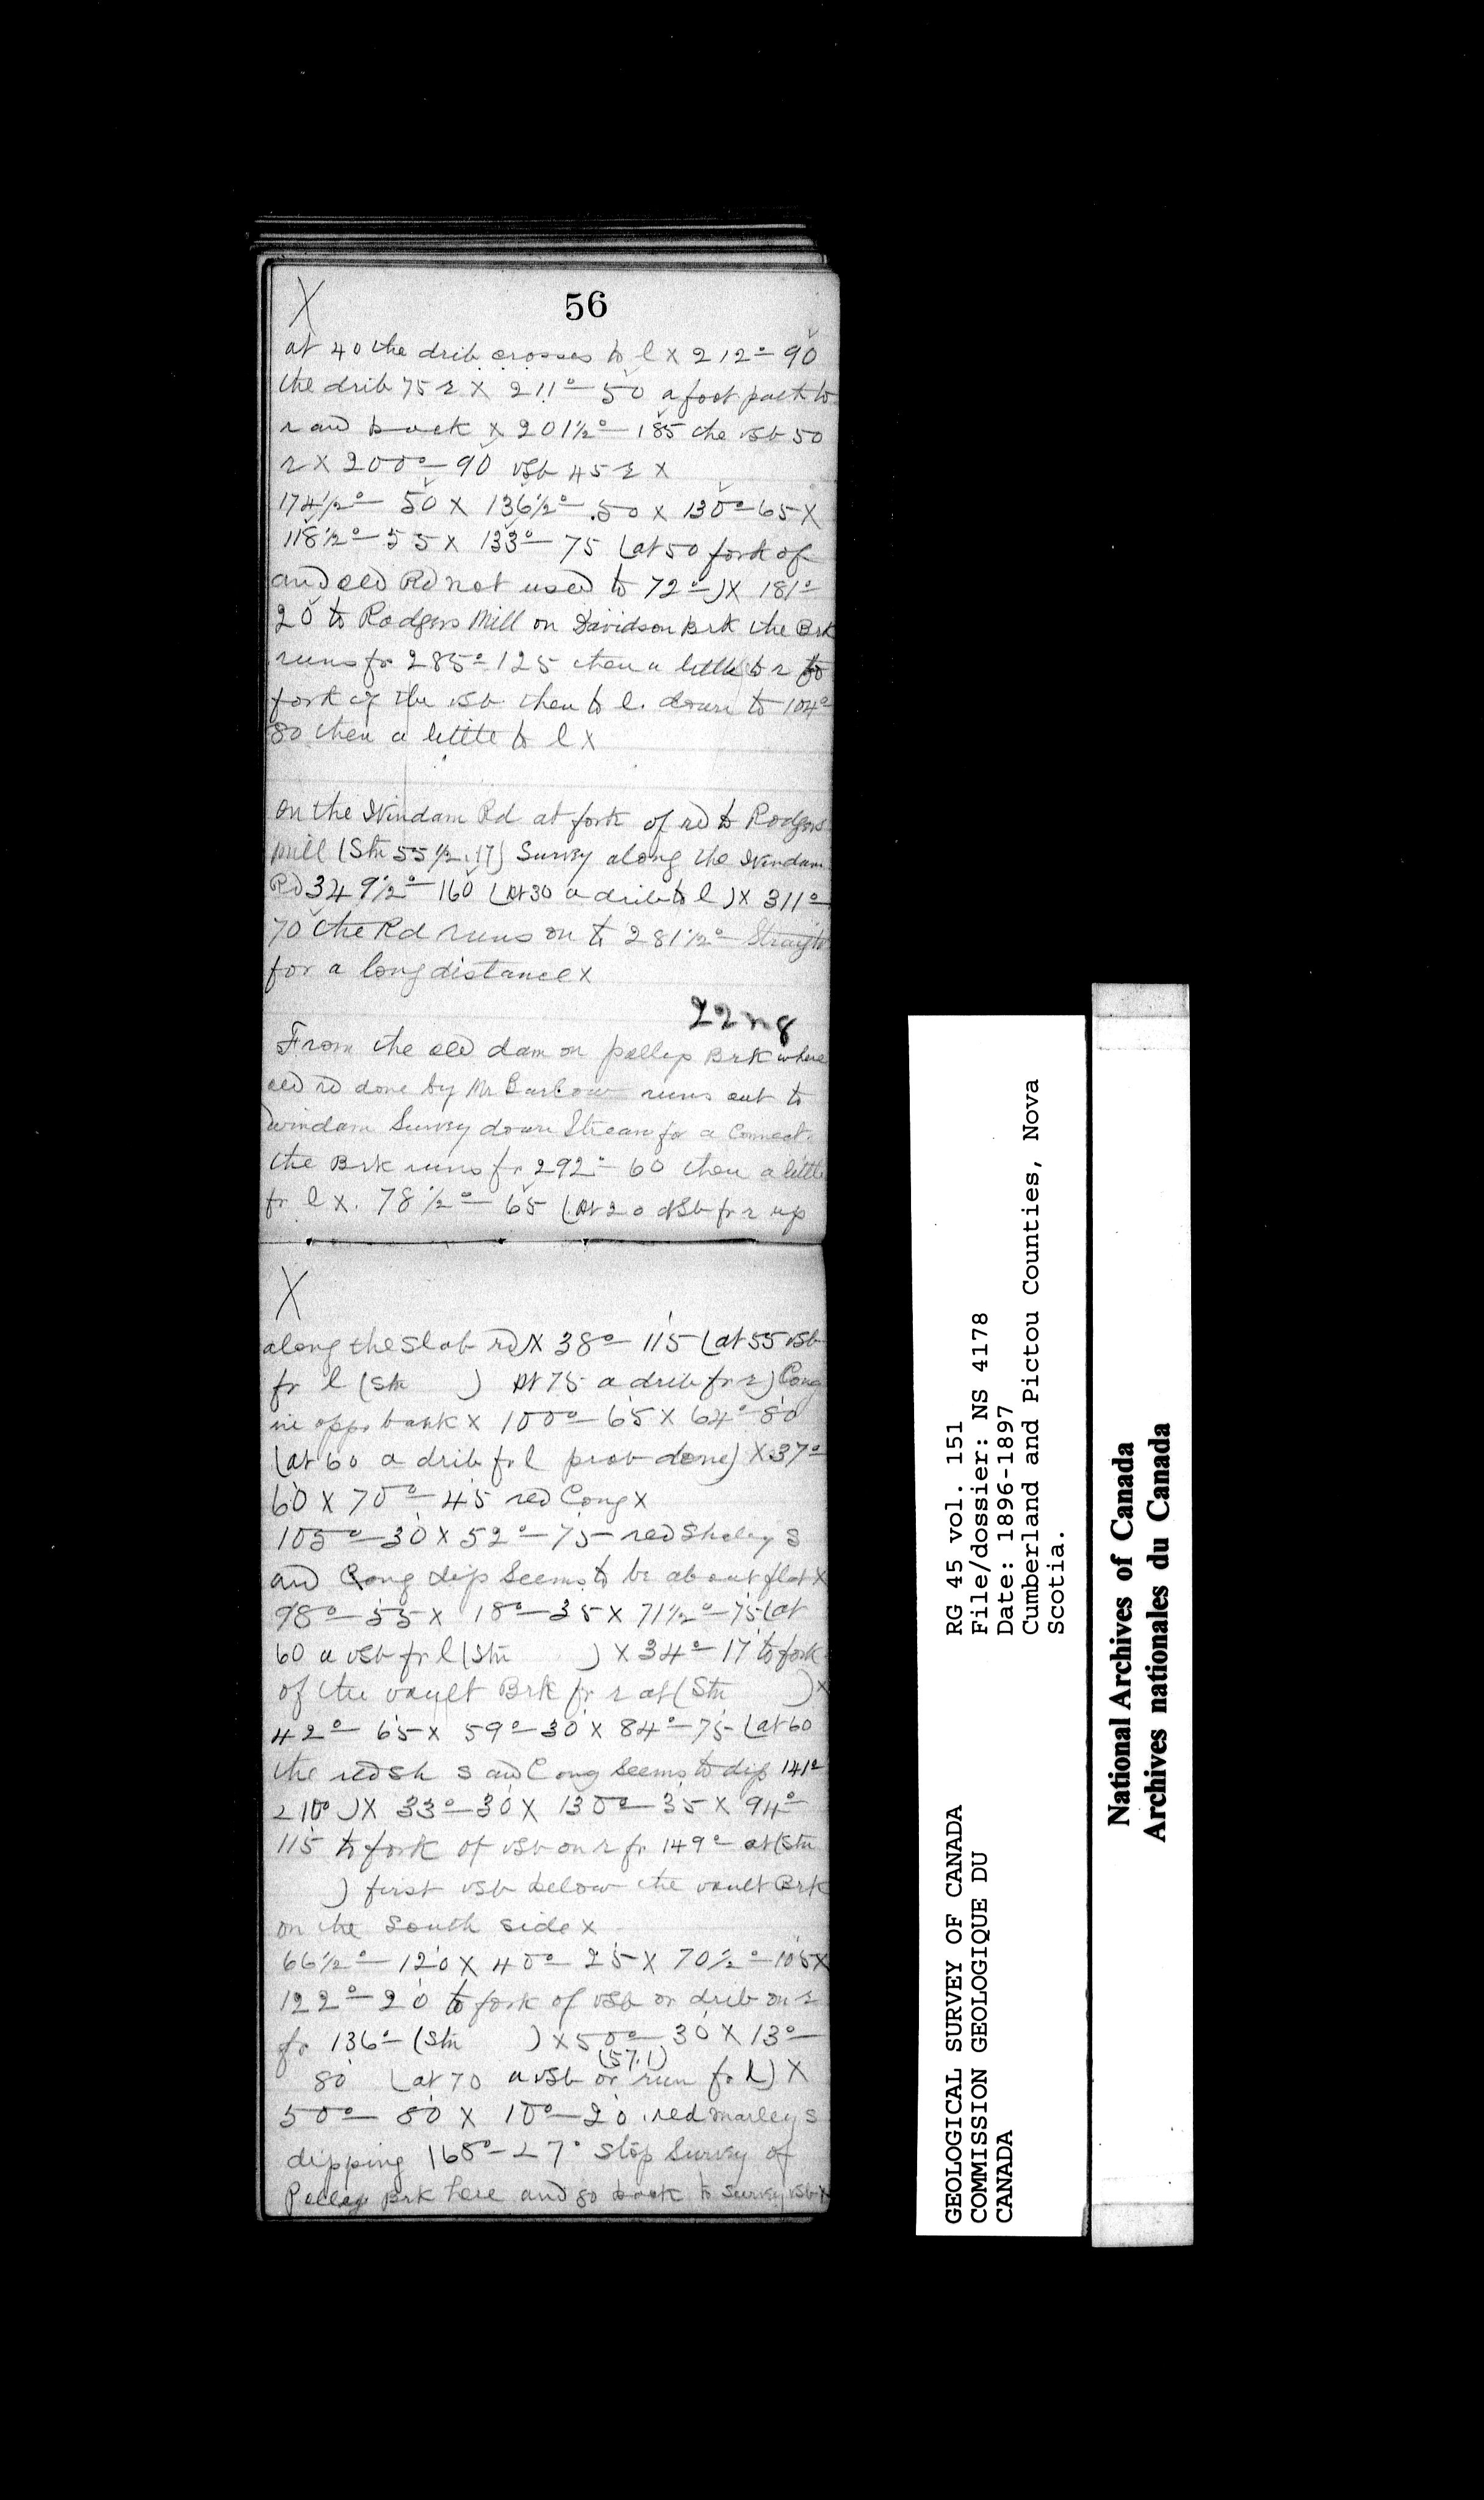 X
56
at 40 the drib crosses to l x 212° 90
the drib 75 r x 211° 50 a foot path to
r and back x 201½° 185 the vsb 50
r x 200° 90 vsb 45 r x
174½° 50 x 136½° 50 x 130° 65 x
118½° 55 x 133° 75 (at 50 fork of
and old Rd not used to 72°) x 181°
20 to Rodgers Mill on Davidson Brk the Brk
runs fr 285° 125 then a little to r to
fork of the vsb then to l. down to 104°
80 then a little to l x
on the Windam Rd at fork of rd to Rodgers
mill (Stn 55½.17) Survey along the Windam
Rd 349½° 160 (At 30 a drib to l) x 311°
70 the Rd runs on to 281½° Straight
for a long distance x
From the old dam on pollep Brk where
old rd done by Mr Barlow runs out to
Windam Survey down Stream for a Connect.
the Brk runs fr 292° 60 then a little
fr l x. 78½° 65 (At 20 vsb fr r up
X
along the Slab rd x 38° 115 (at 55 vsb
fr l (Stn ) At 75 a drib fr r) Cong
in opps bank x 100° 65 x 64° 80
(at 60 a drib fr l prob done) x 37°
60 x 70° 45 red Cong x
105° 30 x 52° 75 red Shaley S
and Cong dip Seems to be about flat x
98° 55 x 18° 35 x 71½° 75 (at
60 a vsb fr l (Stn ) x 34° 17 to fork
of the vault Brk fr r at (Stn ) x
42° 65 x 59° 30 x 84° 75 (at 60
the red Sh S and Cong Seems to dip 141°
∠10°) x 33° 30 x 130° 35 x 94°
115 to fork of vsb on r fr 149° at (Stn
) first vsb below the vault Brk
on the South side x
66½° 120 x 40° 25 x 70½° 105 x
122° 20 to fork of vsb or drib on r
fr 136° (Stn ) x 50° 30 x 13°
(57.1)
80 (at 70 a vsb or run fr l) x
50° 80 x 10° 20 red marley S
dipping 168° ∠7° Stop Survey of
Polley Brk here and go back to Survey vsb x
GEOLOGICAL SURVEY OF CANADA
COMMISSION GEOLOGIQUE DU
CANADA
RG 45 vol. 151
File/dossier: NS 4178
Date: 1896-1897
Cumberland and Pictou Counties, Nova
Scotia.
National Archives of Canada
Archives nationales du Canada